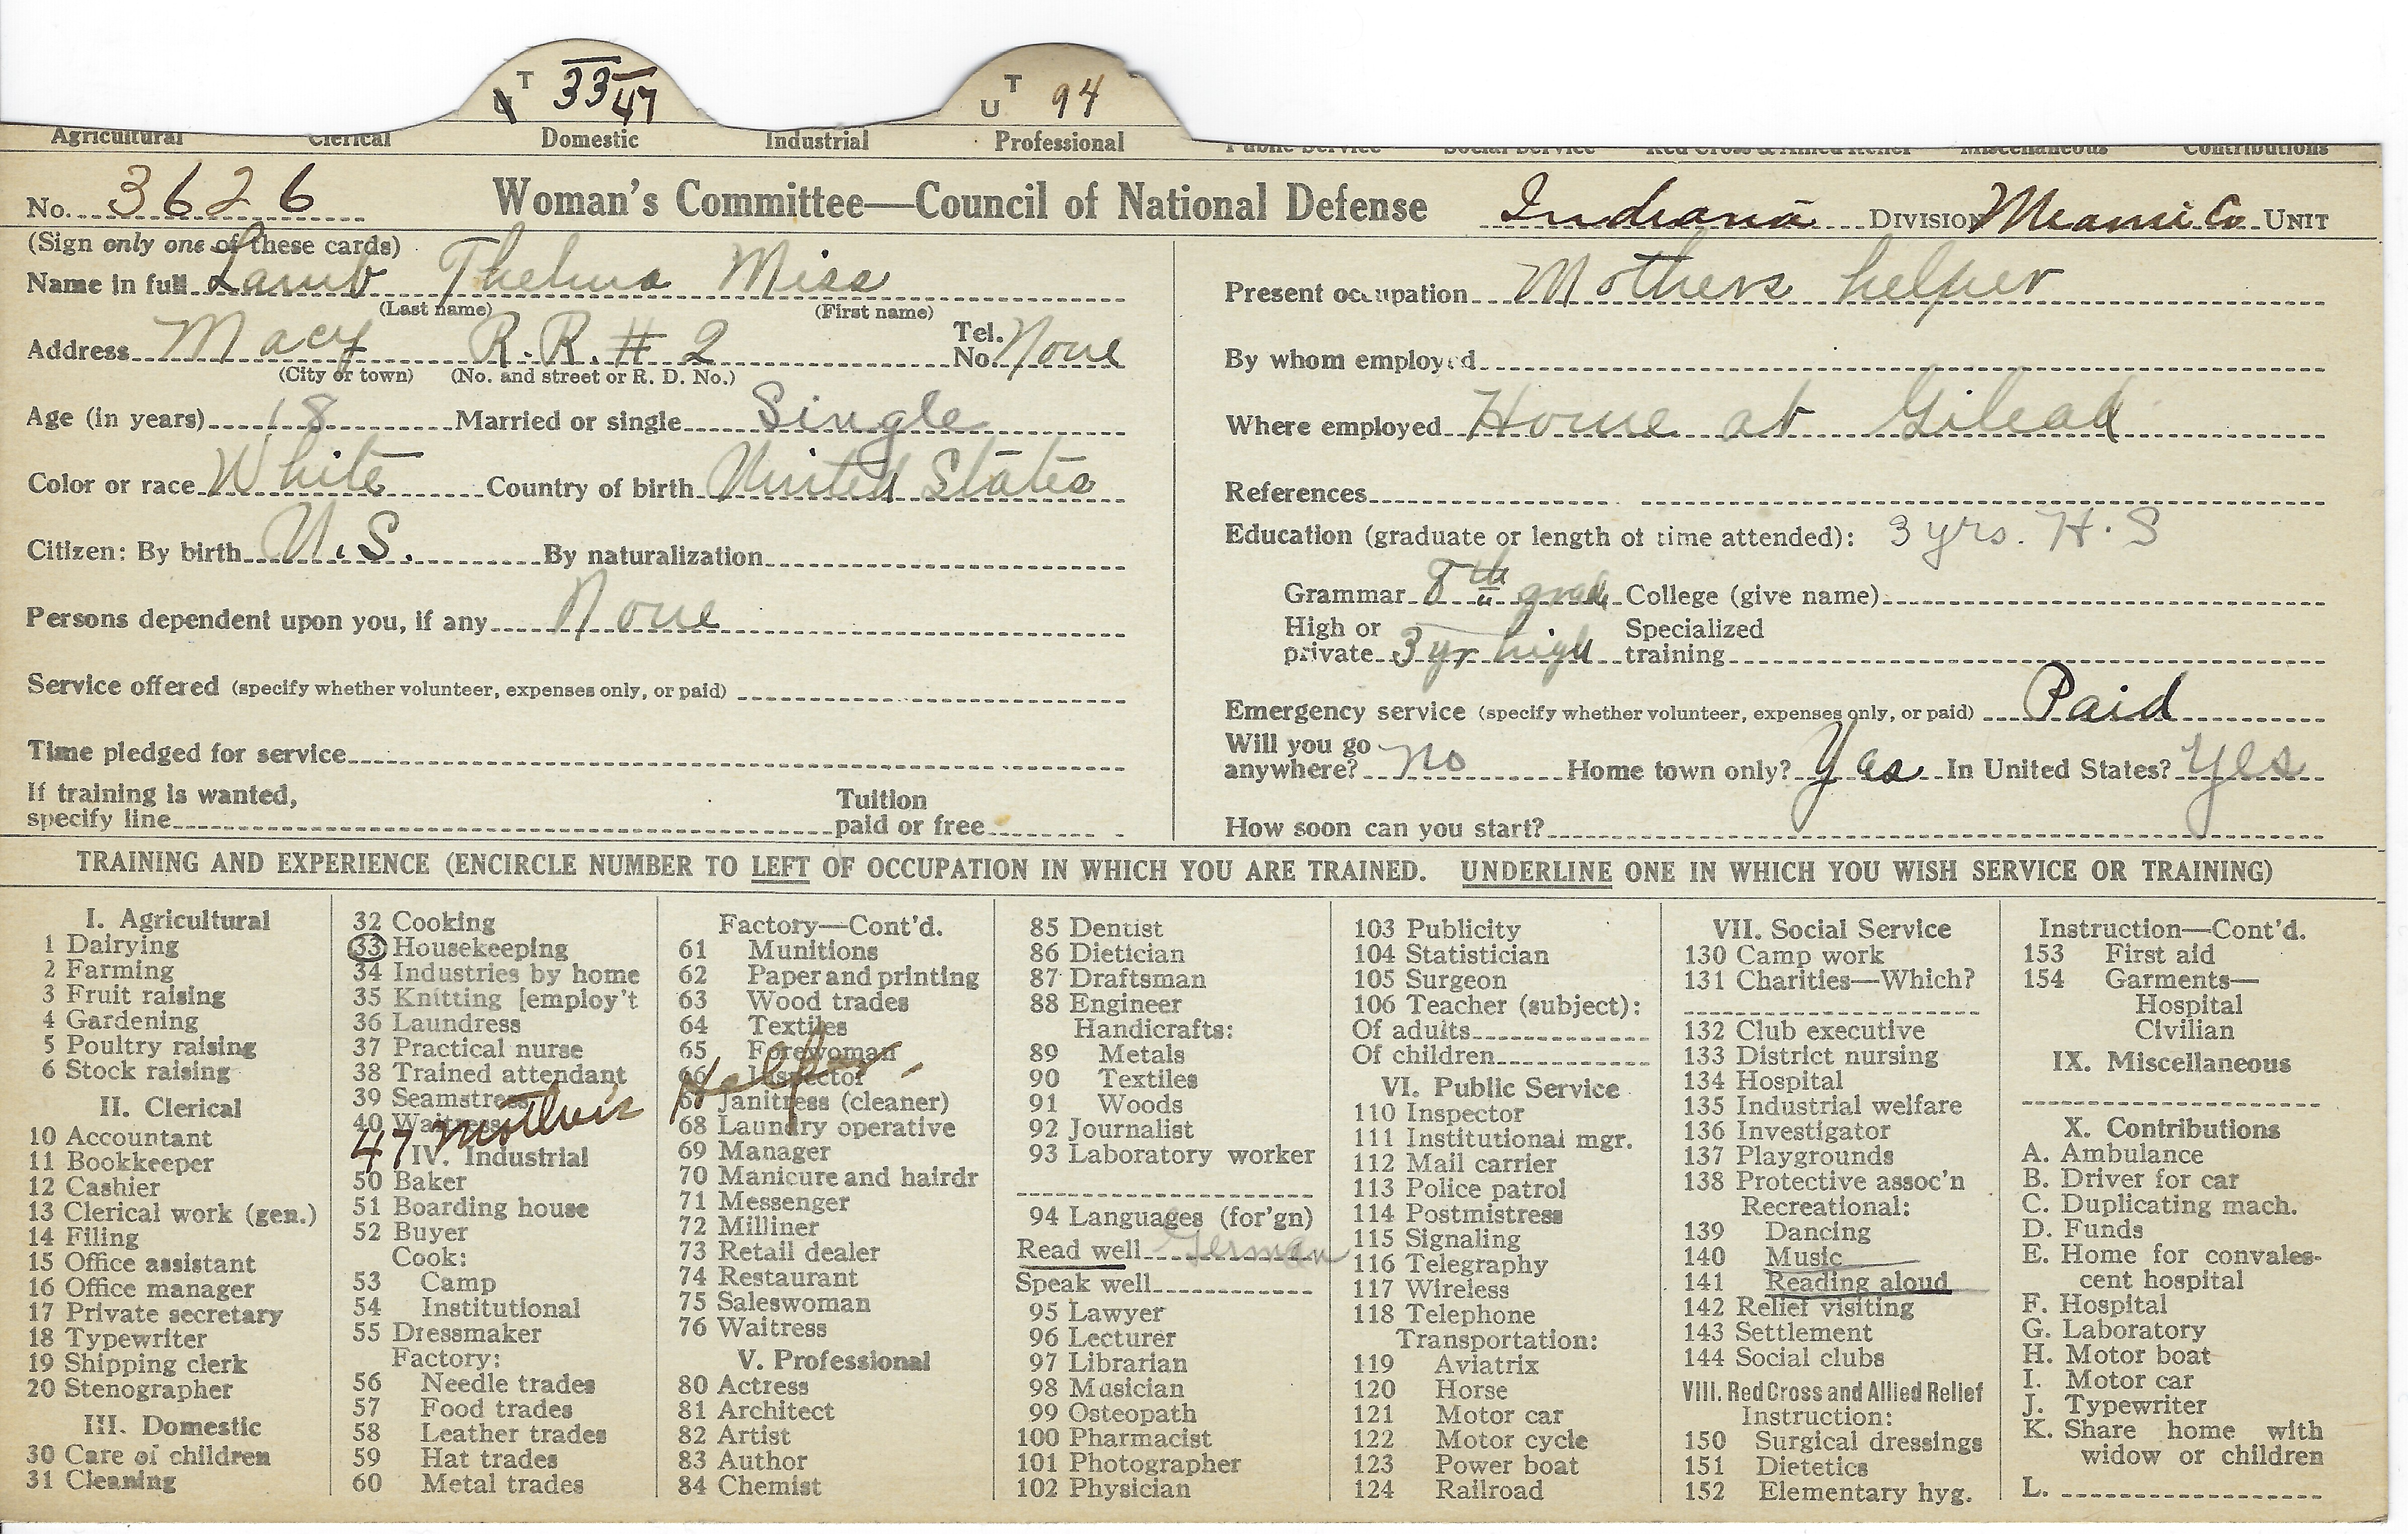 T 33 47
U T 94
Agricultural Clerical Domestic Industrial Professional Public Service Social Service Red Cross & Allied Relief Miscellaneous Contributions
No. 3626 Woman's Committee—Council of National Defense Indiana DIVISION Miami Co UNIT
(Sign only one of these cards)
Name in full Lamb Thelma Miss
(Last name) (First name)
Address Macy R.R. # 2 Tel. No. None
(City or town) (No. and street or R. D. No.)
Age (in years) 18 Married or single Single
Color or race White Country of birth United States
Citizen: By birth U.S. By naturalization
Persons dependent upon you, if any None
Service offered (specify whether volunteer, expenses only, or paid)
Time pledged for service
If training is wanted,
specify line Tuition paid or free
Present occupation Mothers helper
By whom employed
Where employed Home at Gilead
References
Education (graduate or length of time attended): 3 yrs. H.S
Grammar 8th grade College (give name)
High or private 3 yr high Specialized training
Emergency service (specify whether volunteer, expenses only, or paid) Paid
Will you go anywhere? no Home town only? Yes In United States? Yes
How soon can you start?
TRAINING AND EXPERIENCE (ENCIRCLE NUMBER TO LEFT OF OCCUPATION IN WHICH YOU ARE TRAINED. UNDERLINE ONE IN WHICH YOU WISH SERVICE OR TRAINING)
I. Agricultural
1 Dairying
2 Farming
3 Fruit raising
4 Gardening
5 Poultry raising
6 Stock raising
II. Clerical
10 Accountant
11 Bookkeeper
12 Cashier
13 Clerical work (gen.)
14 Filing
15 Office assistant
16 Office manager
17 Private secretary
18 Typewriter
19 Shipping clerk
20 Stenographer
III. Domestic
30 Care of children
31 Cleaning
32 Cooking
33 Housekeeping
34 Industries by home
35 Knitting [employ't
36 Laundress
37 Practical nurse
38 Trained attendant
39 Seamstress
40 Waitress
47 Mothers Helper
IV. Industrial
50 Baker
51 Boarding house
52 Buyer
Cook:
53 Camp
54 Institutional
55 Dressmaker
Factory:
56 Needle trades
57 Food trades
58 Leather trades
59 Hat trades
60 Metal trades
Factory—Cont'd.
61 Munitions
62 Paper and printing
63 Wood trades
64 Textiles
65 Forewoman
66 Inspector
67 Janitress (cleaner)
68 Laundry operative
69 Manager
70 Manicure and hairdr
71 Messenger
72 Milliner
73 Retail dealer
74 Restaurant
75 Saleswoman
76 Waitress
V. Professional
80 Actress
81 Architect
82 Artist
83 Author
84 Chemist
85 Dentist
86 Dietician
87 Draftsman
88 Engineer
Handicrafts:
89 Metals
90 Textiles
91 Woods
92 Journalist
93 Laboratory worker
94 Languages (for'gn)
Read well German
Speak well
95 Lawyer
96 Lecturer
97 Librarian
98 Musician
99 Osteopath
100 Pharmacist
101 Photographer
102 Physician
103 Publicity
104 Statistician
105 Surgeon
106 Teacher (subject):
Of adults
Of children
VI. Public Service
110 Inspector
111 Institutional mgr.
112 Mail carrier
113 Police patrol
114 Postmistress
115 Signaling
116 Telegraphy
117 Wireless
118 Telephone
Transportation:
119 Aviatrix
120 Horse
121 Motor car
122 Motor cycle
123 Power boat
124 Railroad
VII. Social Service
130 Camp work
131 Charities—Which?
132 Club executive
133 District nursing
134 Hospital
135 Industrial welfare
136 Investigator
137 Playgrounds
138 Protective assoc'n
Recreational:
139 Dancing
140 Music
141 Reading aloud
142 Relief visiting
143 Settlement
144 Social clubs
VIII. Red Cross and Allied Relief
Instruction:
150 Surgical dressings
151 Dietetics
152 Elementary hyg.
Instruction—Cont'd.
153 First aid
154 Garments—
Hospital
Civilian
IX. Miscellaneous
X. Contributions
A. Ambulance
B. Driver for car
C. Duplicating mach.
D. Funds
E. Home for convales-
cent hospital
F. Hospital
G. Laboratory
H. Motor boat
I. Motor car
J. Typewriter
K. Share home with
widow or children
L.